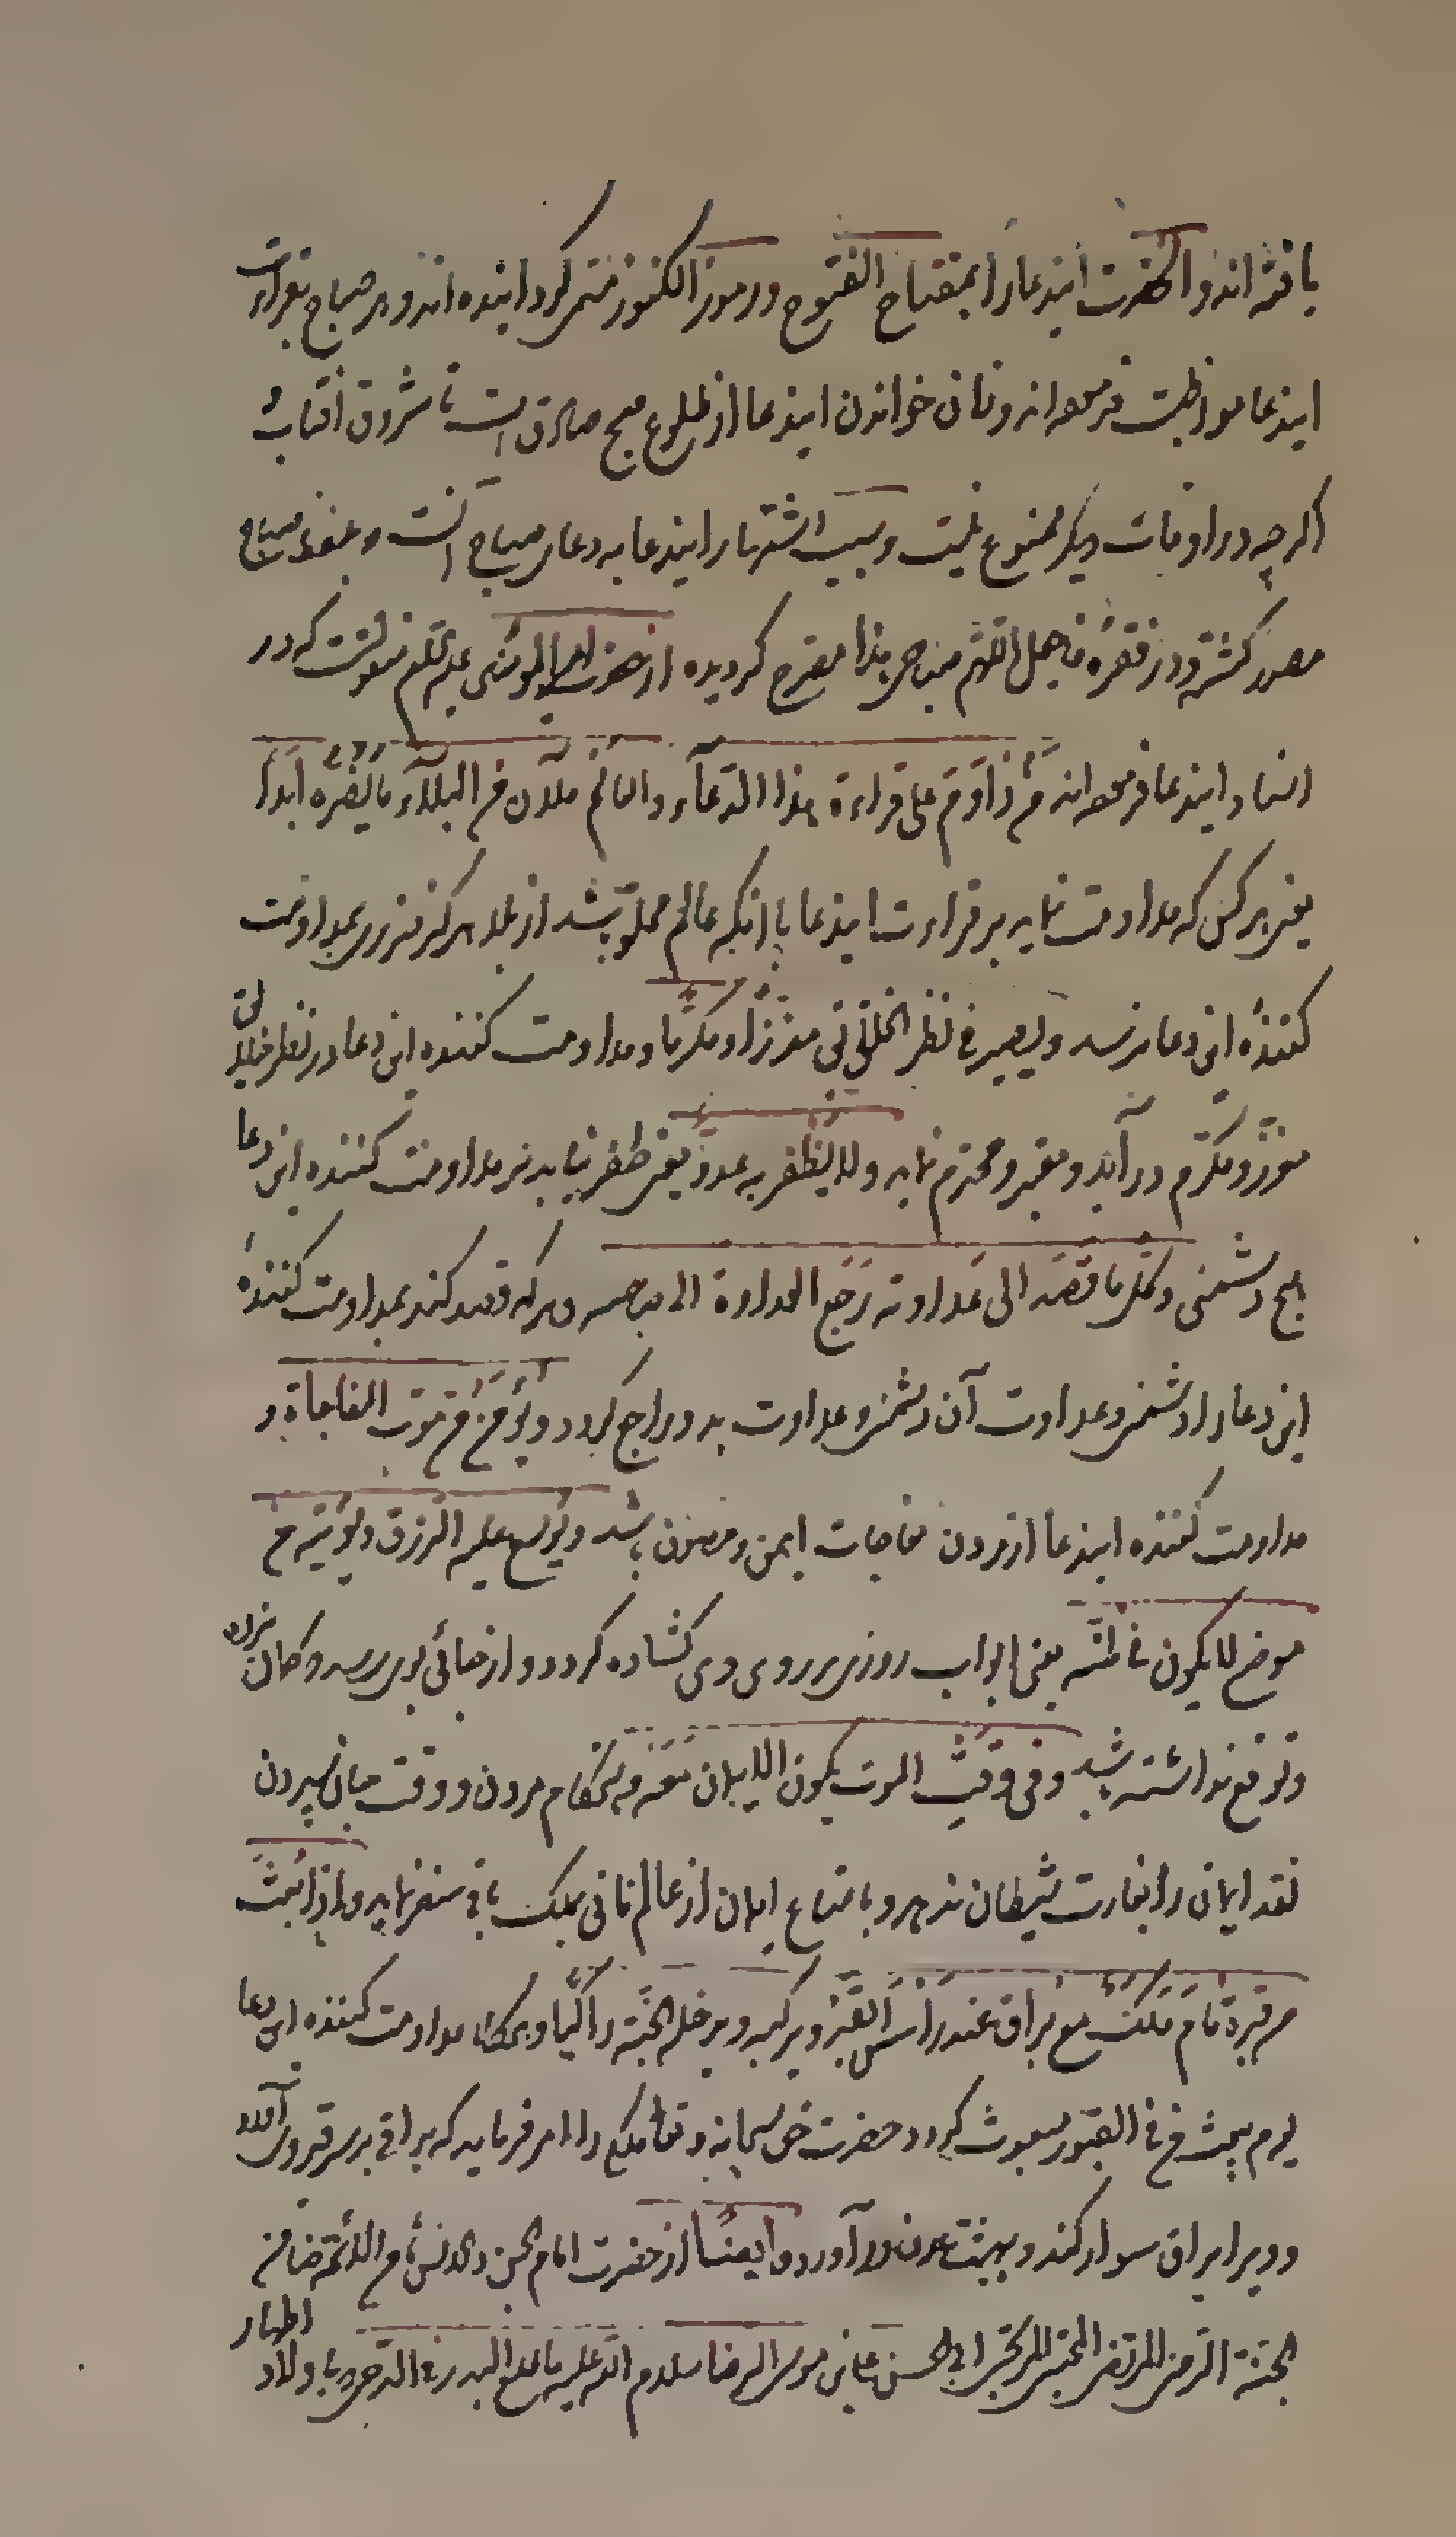 یافته‌اند و آنحضرت ایندعا را بمفتاح الفتوح و رموز الکنوز مسمی کردانیده‌اند و بر صباح بقراءت
ایندعا مواظبت فرموده‌اند و زمان خواندن ایندعا از طلوع صبح صادق است تا شروق افتاب و
اکرچه در اوقات دیکر ممنوع نیست و سبب اشتهار ایندعا به دعای صباح آنست و بعنوان صباح
مصدر کشته و در فقره فاجعل اللهم صباحی هذا مصرح کردیده از حضرت امیرالمؤمنین علیه السلم منقولست که در
اسناد ایندعا فرموده‌اند من داوم علی قراءة هذا الدعآء و العالم ملآن من البلآء ما یضره ابدا
یعنی هر کس که مداومت نماید بر قراءت ایندعا با انکه عالم مملو باشد از بلا هرکز ضرری بمداومت
کنندهٔ این دعا نرسد و یصیر فی نظر الخلائق معززا و مکرما و مداومت کننده این دعا در نظر خلایق
معزز و مکرم درآید و معتبر و محترم نماید و لا یظفر به عدو یعنی ظفر نیابد بر مداومت کننده این دعا
هیچ دشمنی و کل ما قصد الی عداوته رجع العداوة الی صاحبه و هر که قصد کند بمداومت کنندهٔ
این دعا را دشمنی و عداوت آن دشمنی و عداوت بدو راجع کردد و یؤمن من موت الفاجاة و
مداومت کننده ایندعا از مردن مفاجات ایمن و مصون باشد و یوسع علیه الرزق و یؤتیه من
موضع لا یکون فی ظنه یعنی ابواب روزی بر روی وی کشاده کردد و از جائی بوی رسد که کمان نبرده
و توقع نداشته باشد و فی وقت الموت یکون الایمان معه و هنکام مردن و وقت جان سپردن
نقد ایمان را بغارت شیطان ندهد و با متاع ایمان از عالم فانی بملک باقی سفر نماید و اذا بعث
من قبره قام ملک مع براق عند رأس القبر و یرکبه و یدخله الجنة راکبا و مداومت کننده این دعا
یوم یبعث من فی القبور مبعوث کردد حضرت حق سبحانه و تعالی ملکی را امر فرماید که براقی بر سر قبر وی آرد
و ویرا بر براق سوار کند و ببهشت درآورد و ایضا از حضرت امام الجن و الانس ثامن الائمة ضامن
الجنة الرضی المرتضی المجتبی ابی الحسن علی بن موسی الرضا سلام الله علیه باولاد اطهار